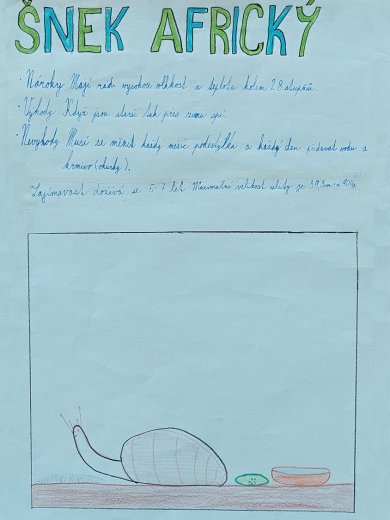 ŠNEK AFRICKÝ
· Nároky Mají rádi vysokou vlhkost a teplotu kolem 28 stupňů.
· Výhody Když jsou starší tak přes zimu spí.
· Nevýhody Musí se měnit každý měsíc podestýlka a každý den přidávat vodu a
krmivo (okurky).
Zajímavost dožívá se 5-7 let Maximální velikost ulity je 39,3cm a